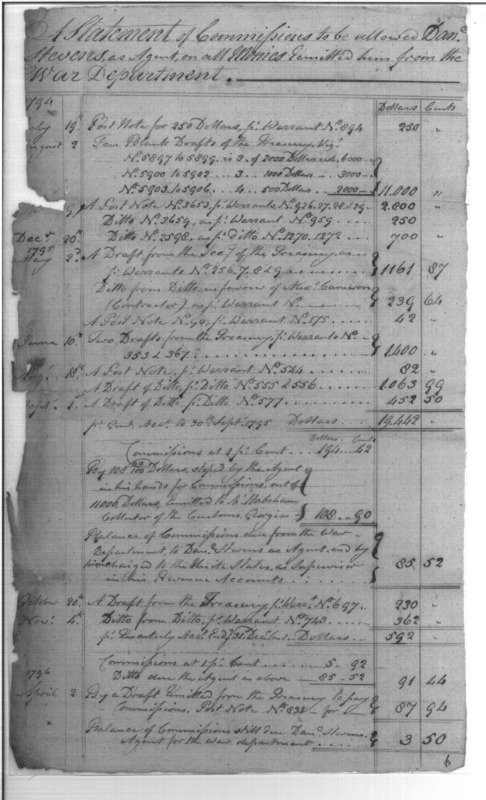 A Statement of Commissions to be allowed Danl.
Stevens, as Agent, on all Monies remitted him from the
War Department.
Dollars Cents
1794
July 19. Post Note for 250 Dollars, pr. Warrant No. 894 250 "
August 2 Ten Blank Drafts of the Treasury, Vizt.
No. 5897 to 5899 is 3 of 2000 Dollars each, 6000
No. 5900 to 5902 .. 3 .. 1000 Dollars - 3000
No. 5903 to 5906 .. 4 .. 500 Dollars - 2000 11.000 "
A Post Note No. 3653, pr. Warrants No. 926.27.28 & 29 2.800 "
Ditto No. 3659, as pr. Warrant No. 959 250
Decr. 20th. Ditto No. 2598, as pr. ditto No. 1270.1272 700 "
1795
May 2d. A Draft from the Secy. of the Treasury, as
pr. Warrants No. 256.7.8 & 9 1161 87
Ditto from Ditto, in favour of Cameron
(Contractor) as pr. Warrant No. 239 64
A Post Note No. 90, pr. Warrant No. 175 42 "
June 10th. Two Drafts from the Treasury, pr. Warrants No.
353 & 367 1400 "
Augt. 18th. A Post Note, pr. Warrant No. 524 82 "
A Draft of Ditto, pr. Ditto No. 555 & 556 1063 99
Sept. 1. A Draft of Ditto, pr. Ditto No. 577 452 50
pr. Acct. to 30th. Septr. 1795 Dollars 19.442 "
Dollars Cents
Commissions at 1 pr. Cent 194 42
By 108 90/100 Dollars, stoped by the Agent
in his hands for Commissions, out of
11000 Dollars, remitted to Mr. Habersham
Collector of the Customs, Georgia 108 .. 90
Ballance of Commissions due from the War
Department, to Danl. Stevens as Agent, and by
him charged to the United States, as Supervisor
in his Revenue Accounts 85 52
October 20th. A Draft from the Treasury pr. Warrt. No. 697 230 "
Novr. 4th. Ditto from Ditto, pr. Warrant No. 743 362 "
pr. Quarterly Acct. End. 31 Dollars 592 "
Commissions at 1 pr. Cent 5 .. 92
Ditto due the Agent as above 85 .. 52 91 44
1796
April 2 By a Draft remitted from the Treasury to pay
Commissions, Post Note No. 832 for 87 94
Ballance of Commissions still due Danl. Stevens,
Agent for the War department 3 50
6